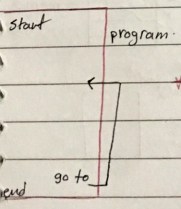 start
program.
go to
end